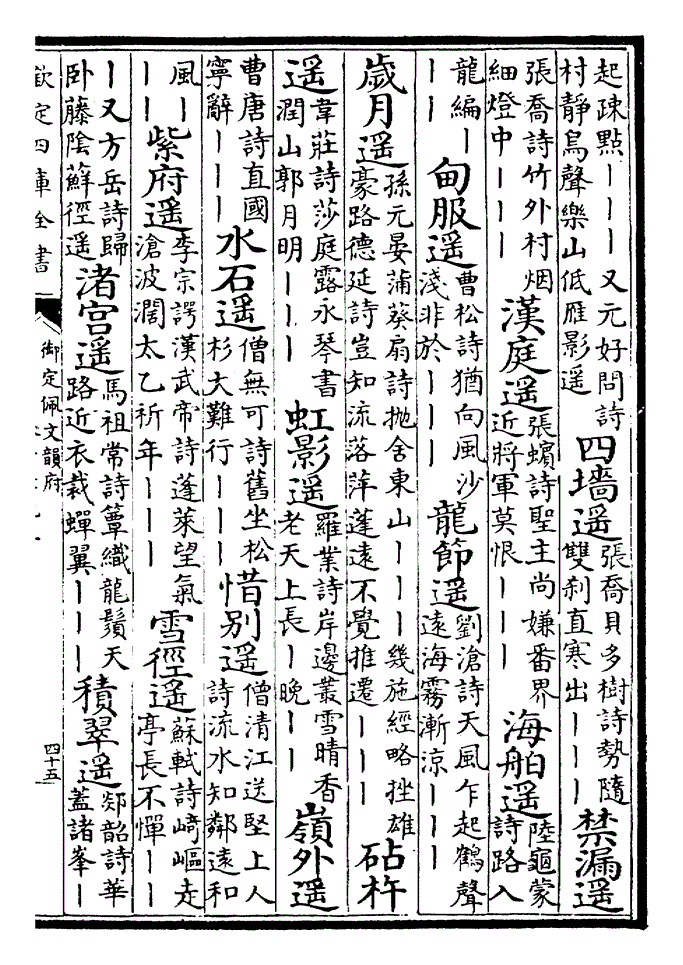 起疎點丨丨丨又元好問詩村靜鳥聲樂山低雁影遥 四墻遥 張喬貝多樹詩勢隨雙刹直寒出丨丨丨 禁漏遥
張喬詩竹外村烟細燈中丨丨丨 漢庭遥 張蠙詩聖主尚嫌番界近將軍莫恨丨丨丨 海舶遥 陸龜蒙詩路入
龍編丨丨丨 甸服遥 曹松詩猶向風沙淺非於丨丨丨 龍節遥 劉滄詩天風乍起鶴聲遠海霧漸凉丨丨丨
歲月遥 孫元晏蒲葵扇詩抛舍東山丨丨丨幾施經略挫雄豪路德延詩豈知流落萍蓬遠不覺推遷丨丨丨 砧杵
遥 韋莊詩莎庭露永琴書潤山郭月明丨丨丨 虹影遥 羅業詩岸邊叢雪晴香老天上長丨晚丨丨 嶺外遥
曹唐詩直國寧辭丨丨丨 水石遥 僧無可詩舊坐松杉大難行丨丨丨 惜别遥 僧清江送堅上人詩流水知鄰遠和
風丨丨丨 紫府遥 李宗諤漢武帝詩蓬萊望氣滄波濶太乙祈年丨丨丨 雪徑遥 蘇軾詩崎嶇走亭長不憚丨丨
丨又方岳詩歸卧藤陰蘚徑遥 渚宫遥 馬祖常詩簟織龍鬚天路近衣裁蟬翼丨丨丨 積翠遥 郯韶詩華蓋諸峯丨
欽定四庫全書
御定佩文韻府
四十五